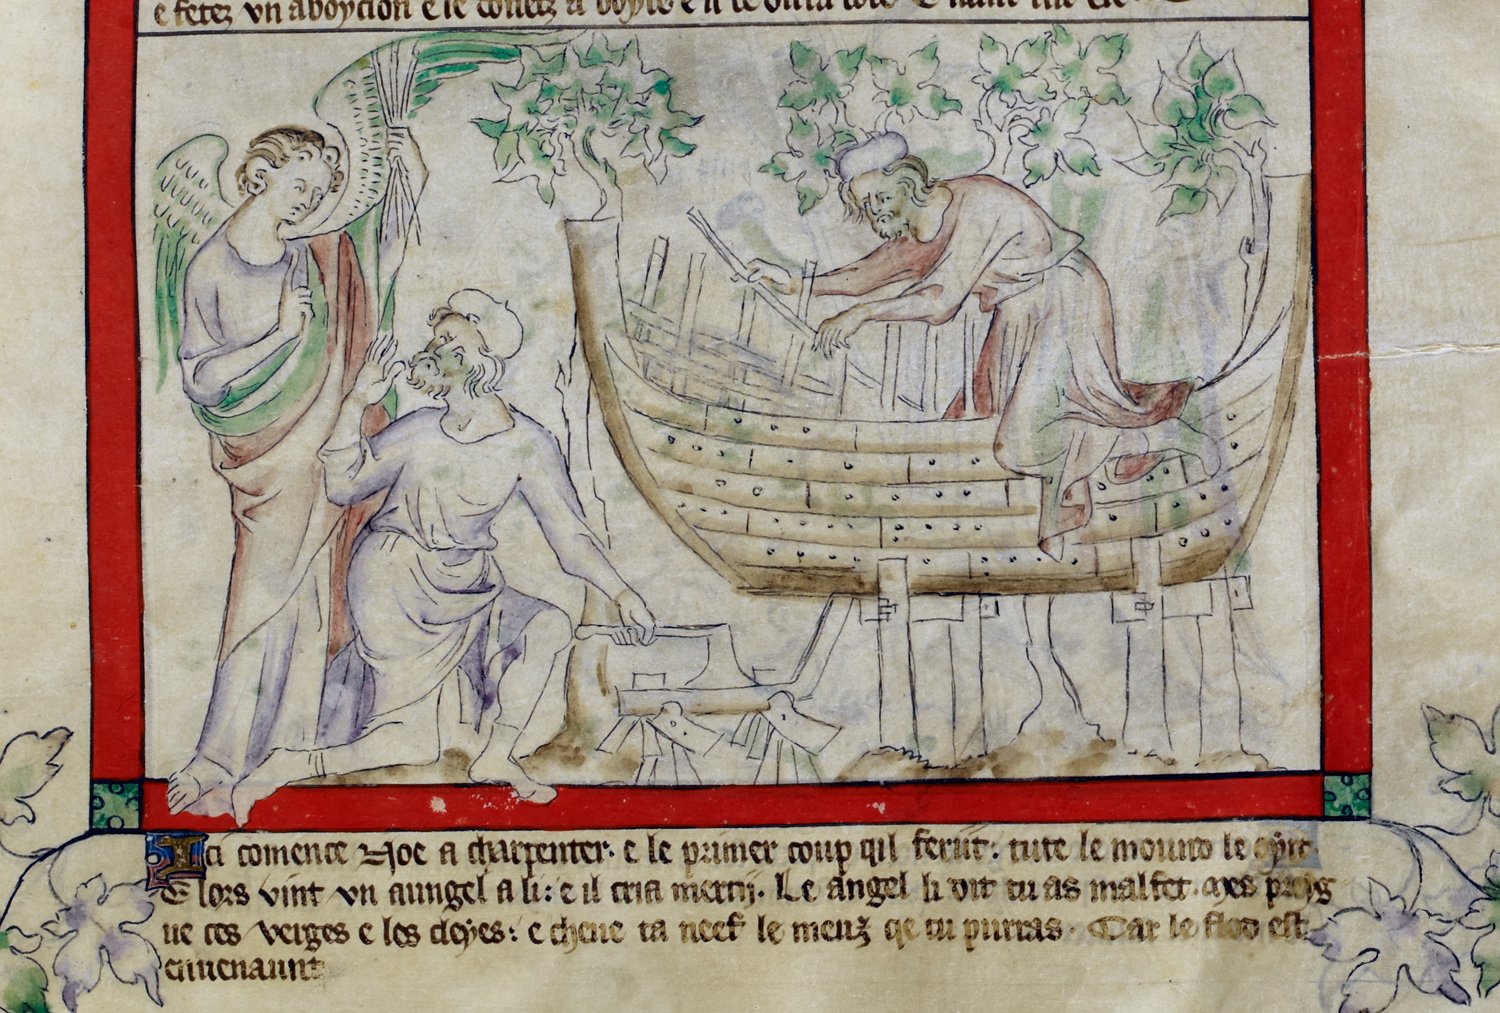 e fetez vn aboycion e le
Ici comence Noe a charpenter. e le primer coup qil feriit: tute le mound le oyit.
E lors vint vn aungel a li: e il cria mercij. Le angel li dit tu as malfet. mes
ue ces verges e les cloyes: e cheue ta neef le meuz qe tu purras. Car le flod est